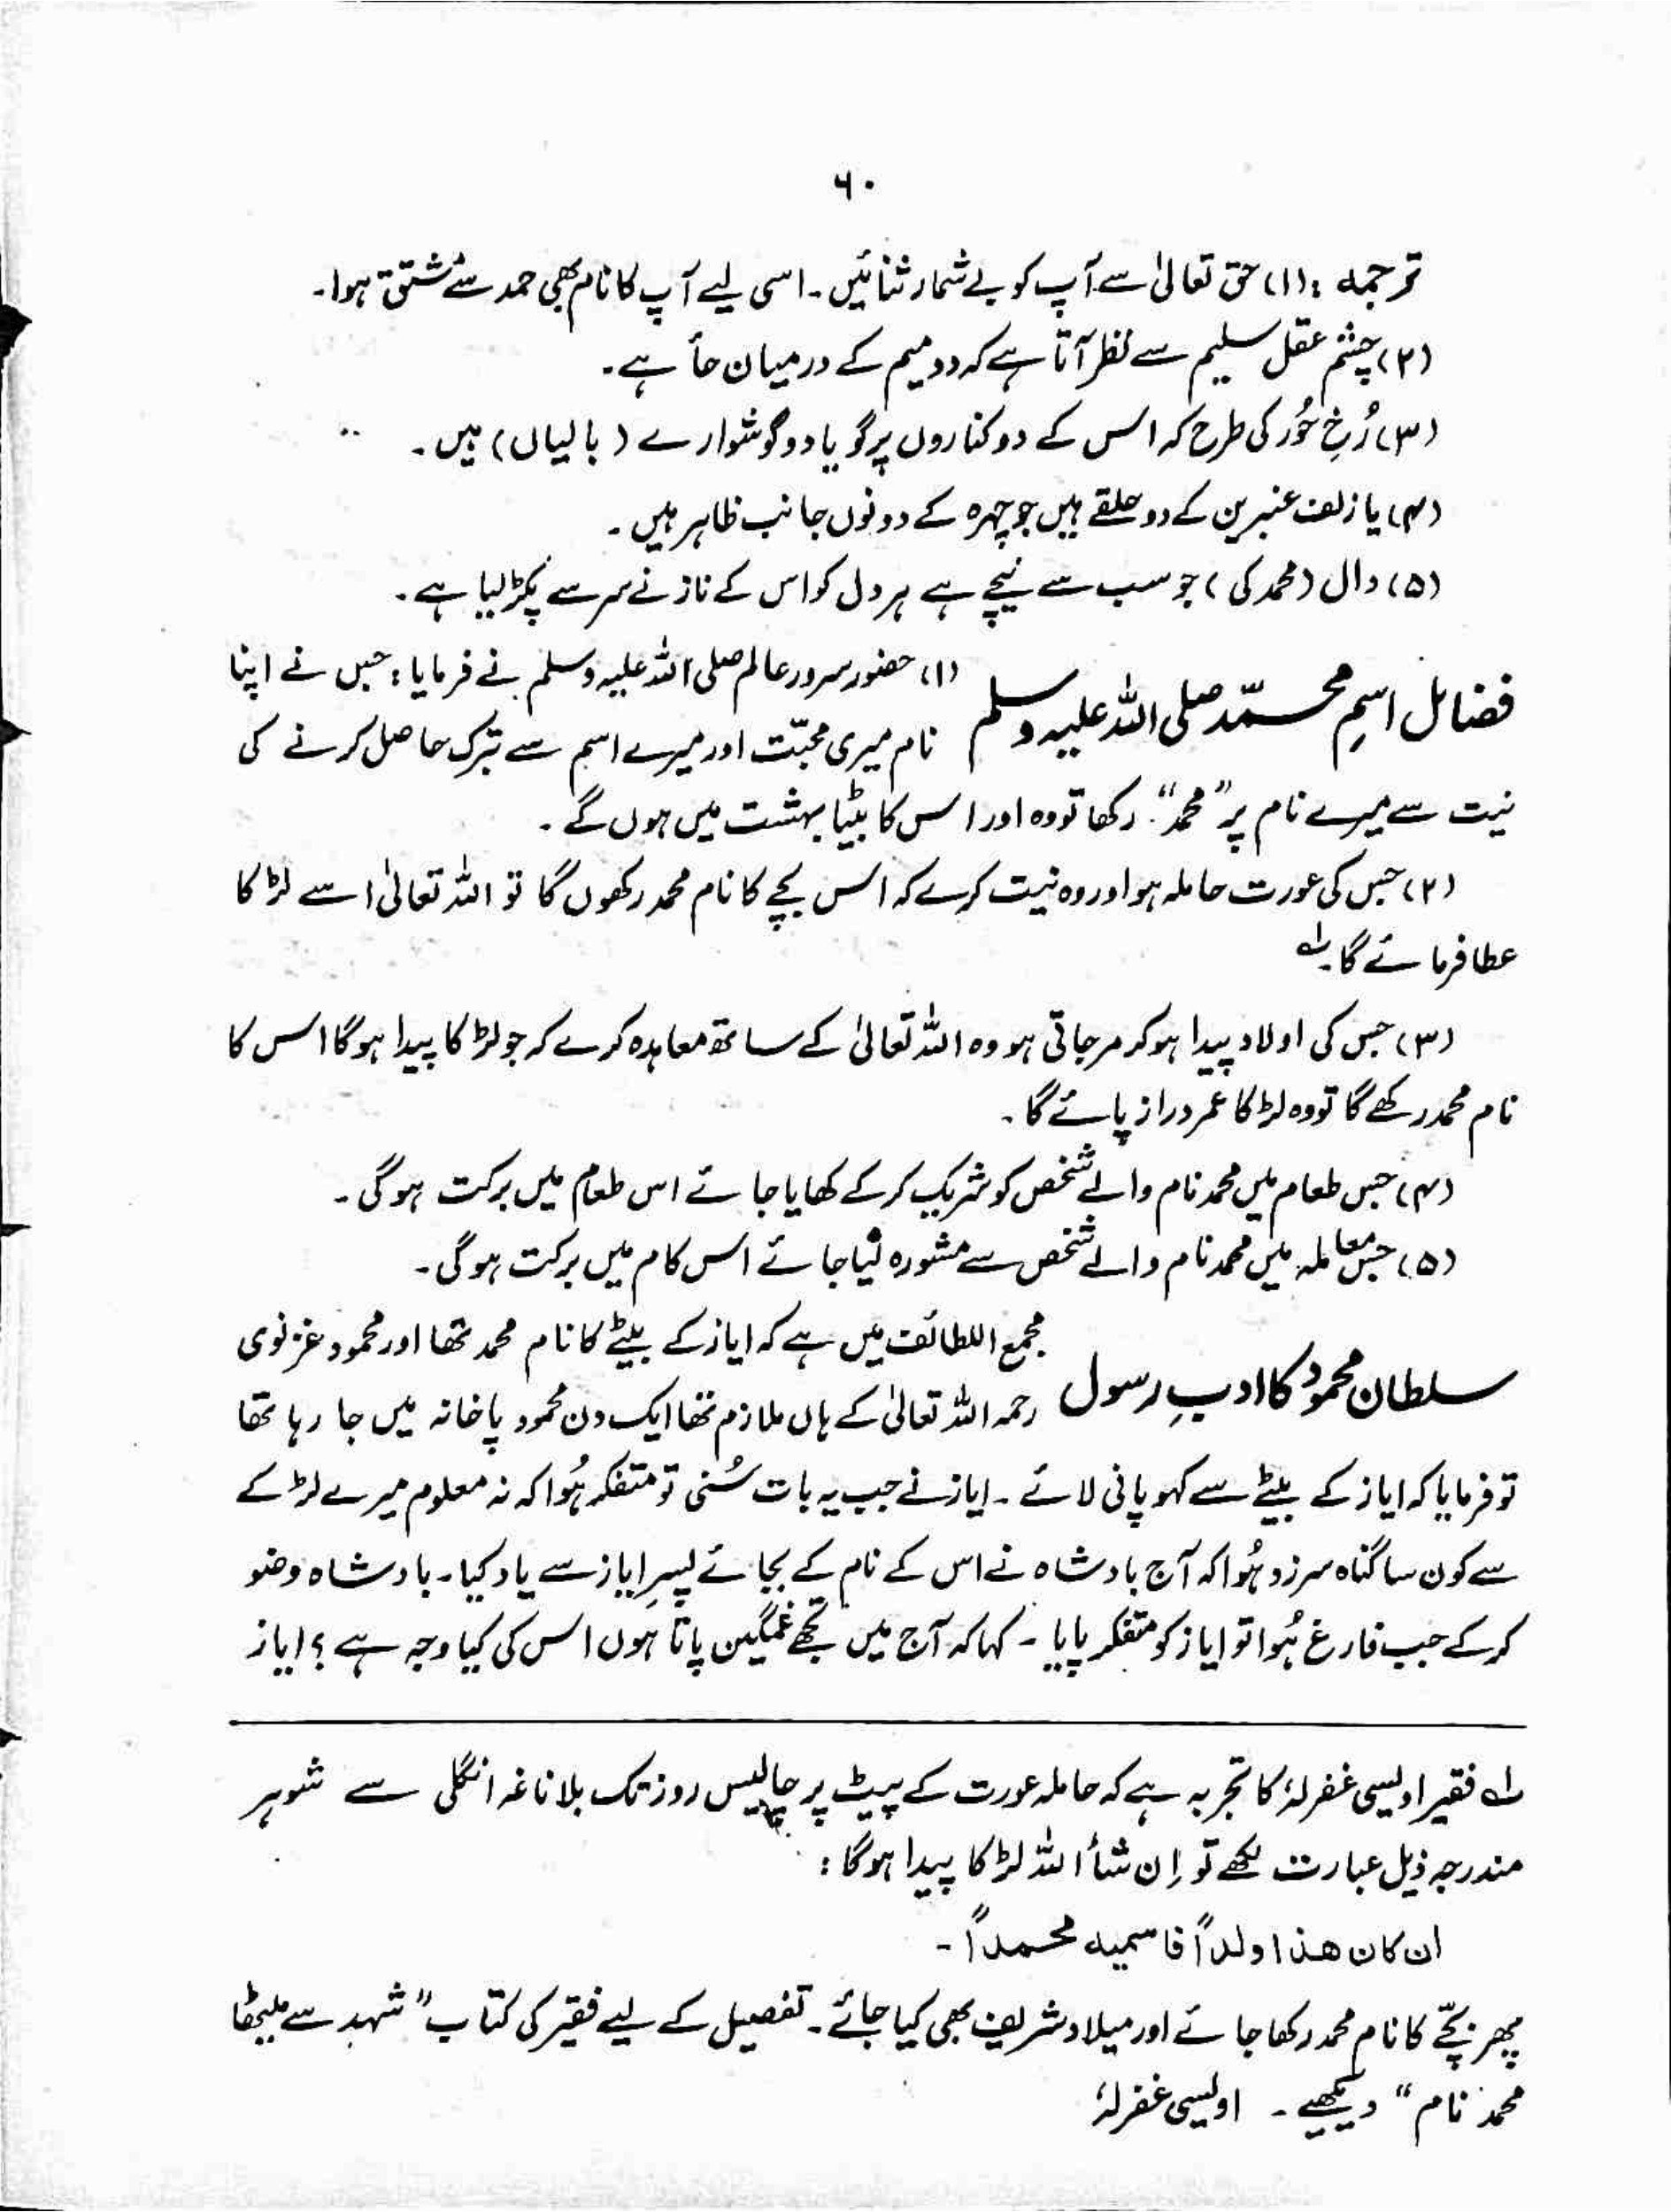 ۶۰
ترجمہ : (۱) حق تعالیٰ سے آپ کو بے شمار ثنائیں۔ اسی لیے آپ کا نام بھی حمد سے مشتق ہوا۔
(۲) چشم عقل سلیم سے نظر آتا ہے کہ دو میم کے درمیان حأ ہے۔
(۳) رُخِ حُور کی طرح کہ اس کے دو کناروں پر گویا دو گوشوارے (بالیاں) ہیں۔
(۴) یا زلف عنبرین کے دو حلقے ہیں جو چہرہ کے دونوں جانب ظاہر ہیں۔
(۵) دال (محمد کی) جو سب سے نیچے ہے ہر دل کو اس کے ناز نے سر سے پکڑ لیا ہے۔
فضائل اسمِ محمّد صلی اللہ علیہ وسلم (۱) حضور سرور عالم صلی اللہ علیہ وسلم نے فرمایا: جس نے اپنا
نام میری محبّت اور میرے اسم سے تبرک حاصل کرنے کی
نیت سے میرے نام پر "محمد" رکھا تو وہ اور اس کا بیٹا بہشت میں ہوں گے۔
(۲) جس کی عورت حاملہ ہو اور وہ نیت کرے کہ اس بچے کا نام محمد رکھوں گا تو اللہ تعالیٰ اسے لڑکا
عطا فرمائے گا۔ لہ
(۳) جس کی اولاد پیدا ہو کر مرجاتی ہو وہ اللہ تعالیٰ کے ساتھ معاہدہ کرے کہ جو لڑکا پیدا ہوگا اس کا
نام محمد رکھے گا تو وہ لڑکا عمر دراز پائے گا۔
(۴) جس طعام میں محمد نام والے شخص کو شریک کر کے کھایا جائے اس طعام میں برکت ہوگی۔
(۵) جس معاملہ میں محمد نام والے شخص سے مشورہ لیا جائے اس کام میں برکت ہوگی۔
سلطان محمود کا ادبِ رسول مجمع اللطائف میں ہے کہ ایاز کے بیٹے کا نام محمد تھا اور محمود غزنوی
رحمہ اللہ تعالیٰ کے ہاں ملازم تھا ایک دن محمود پاخانہ میں جا رہا تھا
تو فرمایا کہ ایاز کے بیٹے سے کہو پانی لائے۔ ایاز نے جب یہ بات سُنی تو متفکر ہُوا کہ نہ معلوم میرے لڑکے
سے کون سا گناہ سرزد ہُوا کہ آج بادشاہ نے اس کے نام کے بجائے پسرِ ایاز سے یاد کیا۔ بادشاہ وضو
کر کے جب فارغ ہُوا تو ایاز کو متفکر پایا۔ کہا کہ آج میں تجھے غمگین پاتا ہوں اس کی کیا وجہ ہے ؟ ایاز
لہ فقیر اویسی غفرلہٗ کا تجربہ ہے کہ حاملہ عورت کے پیٹ پر چالیس روز تک بلاناغہ انگلی سے شوہر
مندرجہ ذیل عبارت لکھے تو اِن شأ اللہ لڑکا پیدا ہوگا :
ان کان ھذا ولداً فاسمیہ محمداً۔
پھر بچّے کا نام محمد رکھا جائے اور میلاد شریف بھی کیا جائے۔ تفصیل کے لیے فقیر کی کتاب "شہد سے میٹھا
محمد نام" دیکھیے۔ اویسی غفرلہٗ